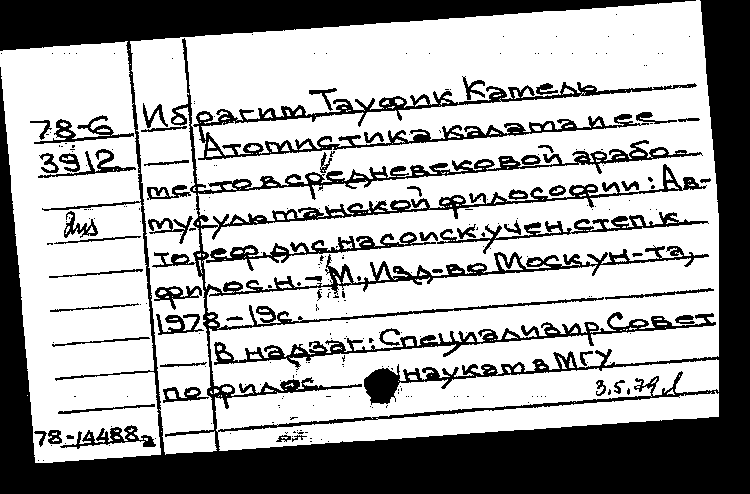 78-6 Ибрагим, Тауфик Камель
3912 Атомистика калама и ее
место в средневековой арабо-
мусульманской философии: Ав-
тореф. дис. на соиск. учен. степ. к.
филос. н. - М., Изд-во Моск. ун-та,
1978. - 19 с.
В надзаг.: Специализир. Совет
по филос. наукам в МГУ
3.5.79
78-14488а